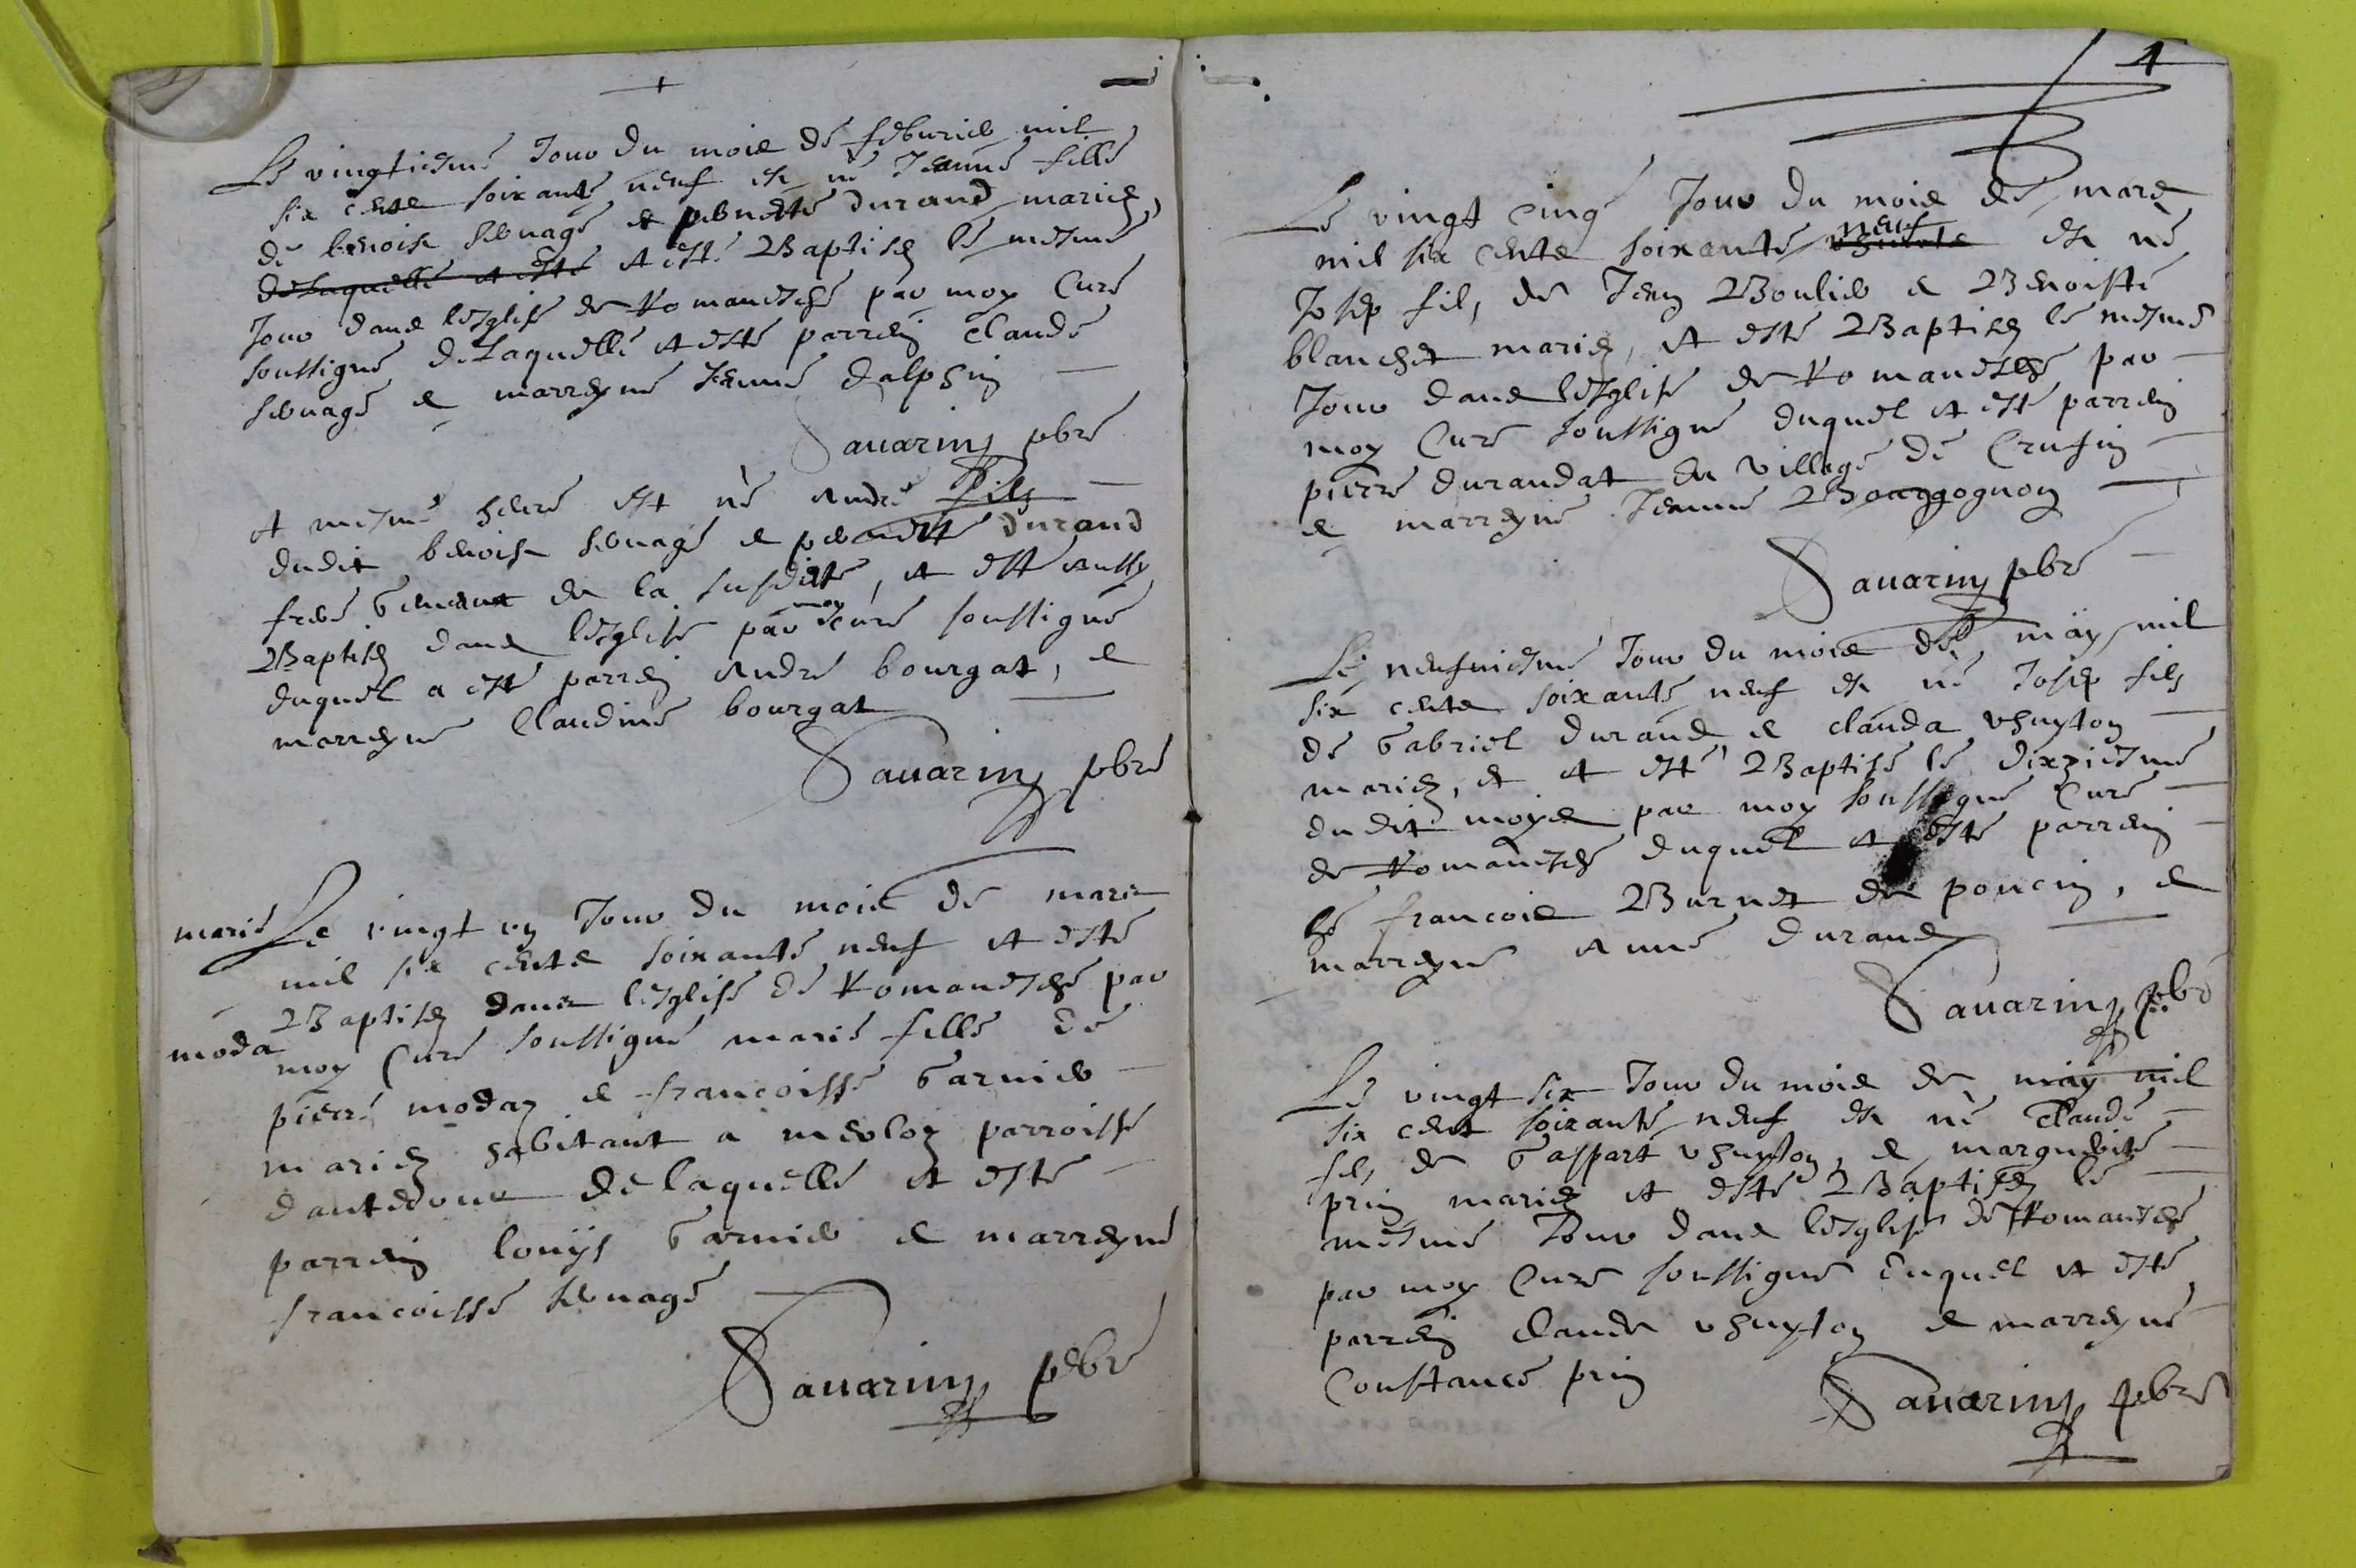 Le vingtiesme Jour du mois de feburier mil
six cents soixante neuf est né Jeanne fille
de benoist seruage et pernette durand mariez,
de laquelle at esté at esté Baptisez le mesme
Jour dans lesglise de Romanesche par moy Curé
soussigné de Laquelle at esté parrein Claude
seruage et marreyne Jeanne dalphin
Sauarin pbre
At mesme heure est né André fils
dudit benoist seruage et pernette durand
frere gemeaux de la susditte, at esté aussy
Baptisez dans lesglise par moy curé soussigné
duquel a esté parrein André bourgat, et
marreyne Claudine bourgat
Sauarin pbre
marie Le vingt un Jour du mois de mars
mil six cents soixante neuf at esté
Baptisez dans lesglise de Romanesche par
moda moy Curé soussigné marie fille de
pierre modaz et francoisse Garnier
mariez habitant a merloz parroisse
dantedour de laquelle at esté
parrein louys Garnier et marreyne
francoisse seruage
Sauarin pbre
4
Le vingt cinq Jour du mois de mars
mil six cents soixante neuf est né
Josep fils, de Jean Boulier et Benoiste
blanchet mariez, at esté Baptisez le mesme
Jour dans lesglise de Romanesche par
moy Curé soussigné duquel at esté parrein
pierre durandat du village de Crusin
et marreyne Jeanne Bourgognon
Sauarin pbre
Le neufuiesme Jour du mois de may mil
six cents soixante neuf est né Josep fils
de Gabriel durand et clauda vhuyton
mariez, et at esté Baptisé le dixziesme
dudit moys par moy soussigné Curé
de Romanesche duquel at esté parrein
le francois Burnet de poncin, et
marreyne Anne durand
Sauarin pbre
Le vingt six Jour du mois de may mil
six cent soixante neuf est né Claude
fils de Gaspart vhuyton, et marguerite
prin mariez at esté Baptisez le
mesme Jour dans lesglise de Romanesche
par moy Curé soussigné duquel at esté
parrein Claude vhuyton et marreyne
Constance prin
Sauarin pbre